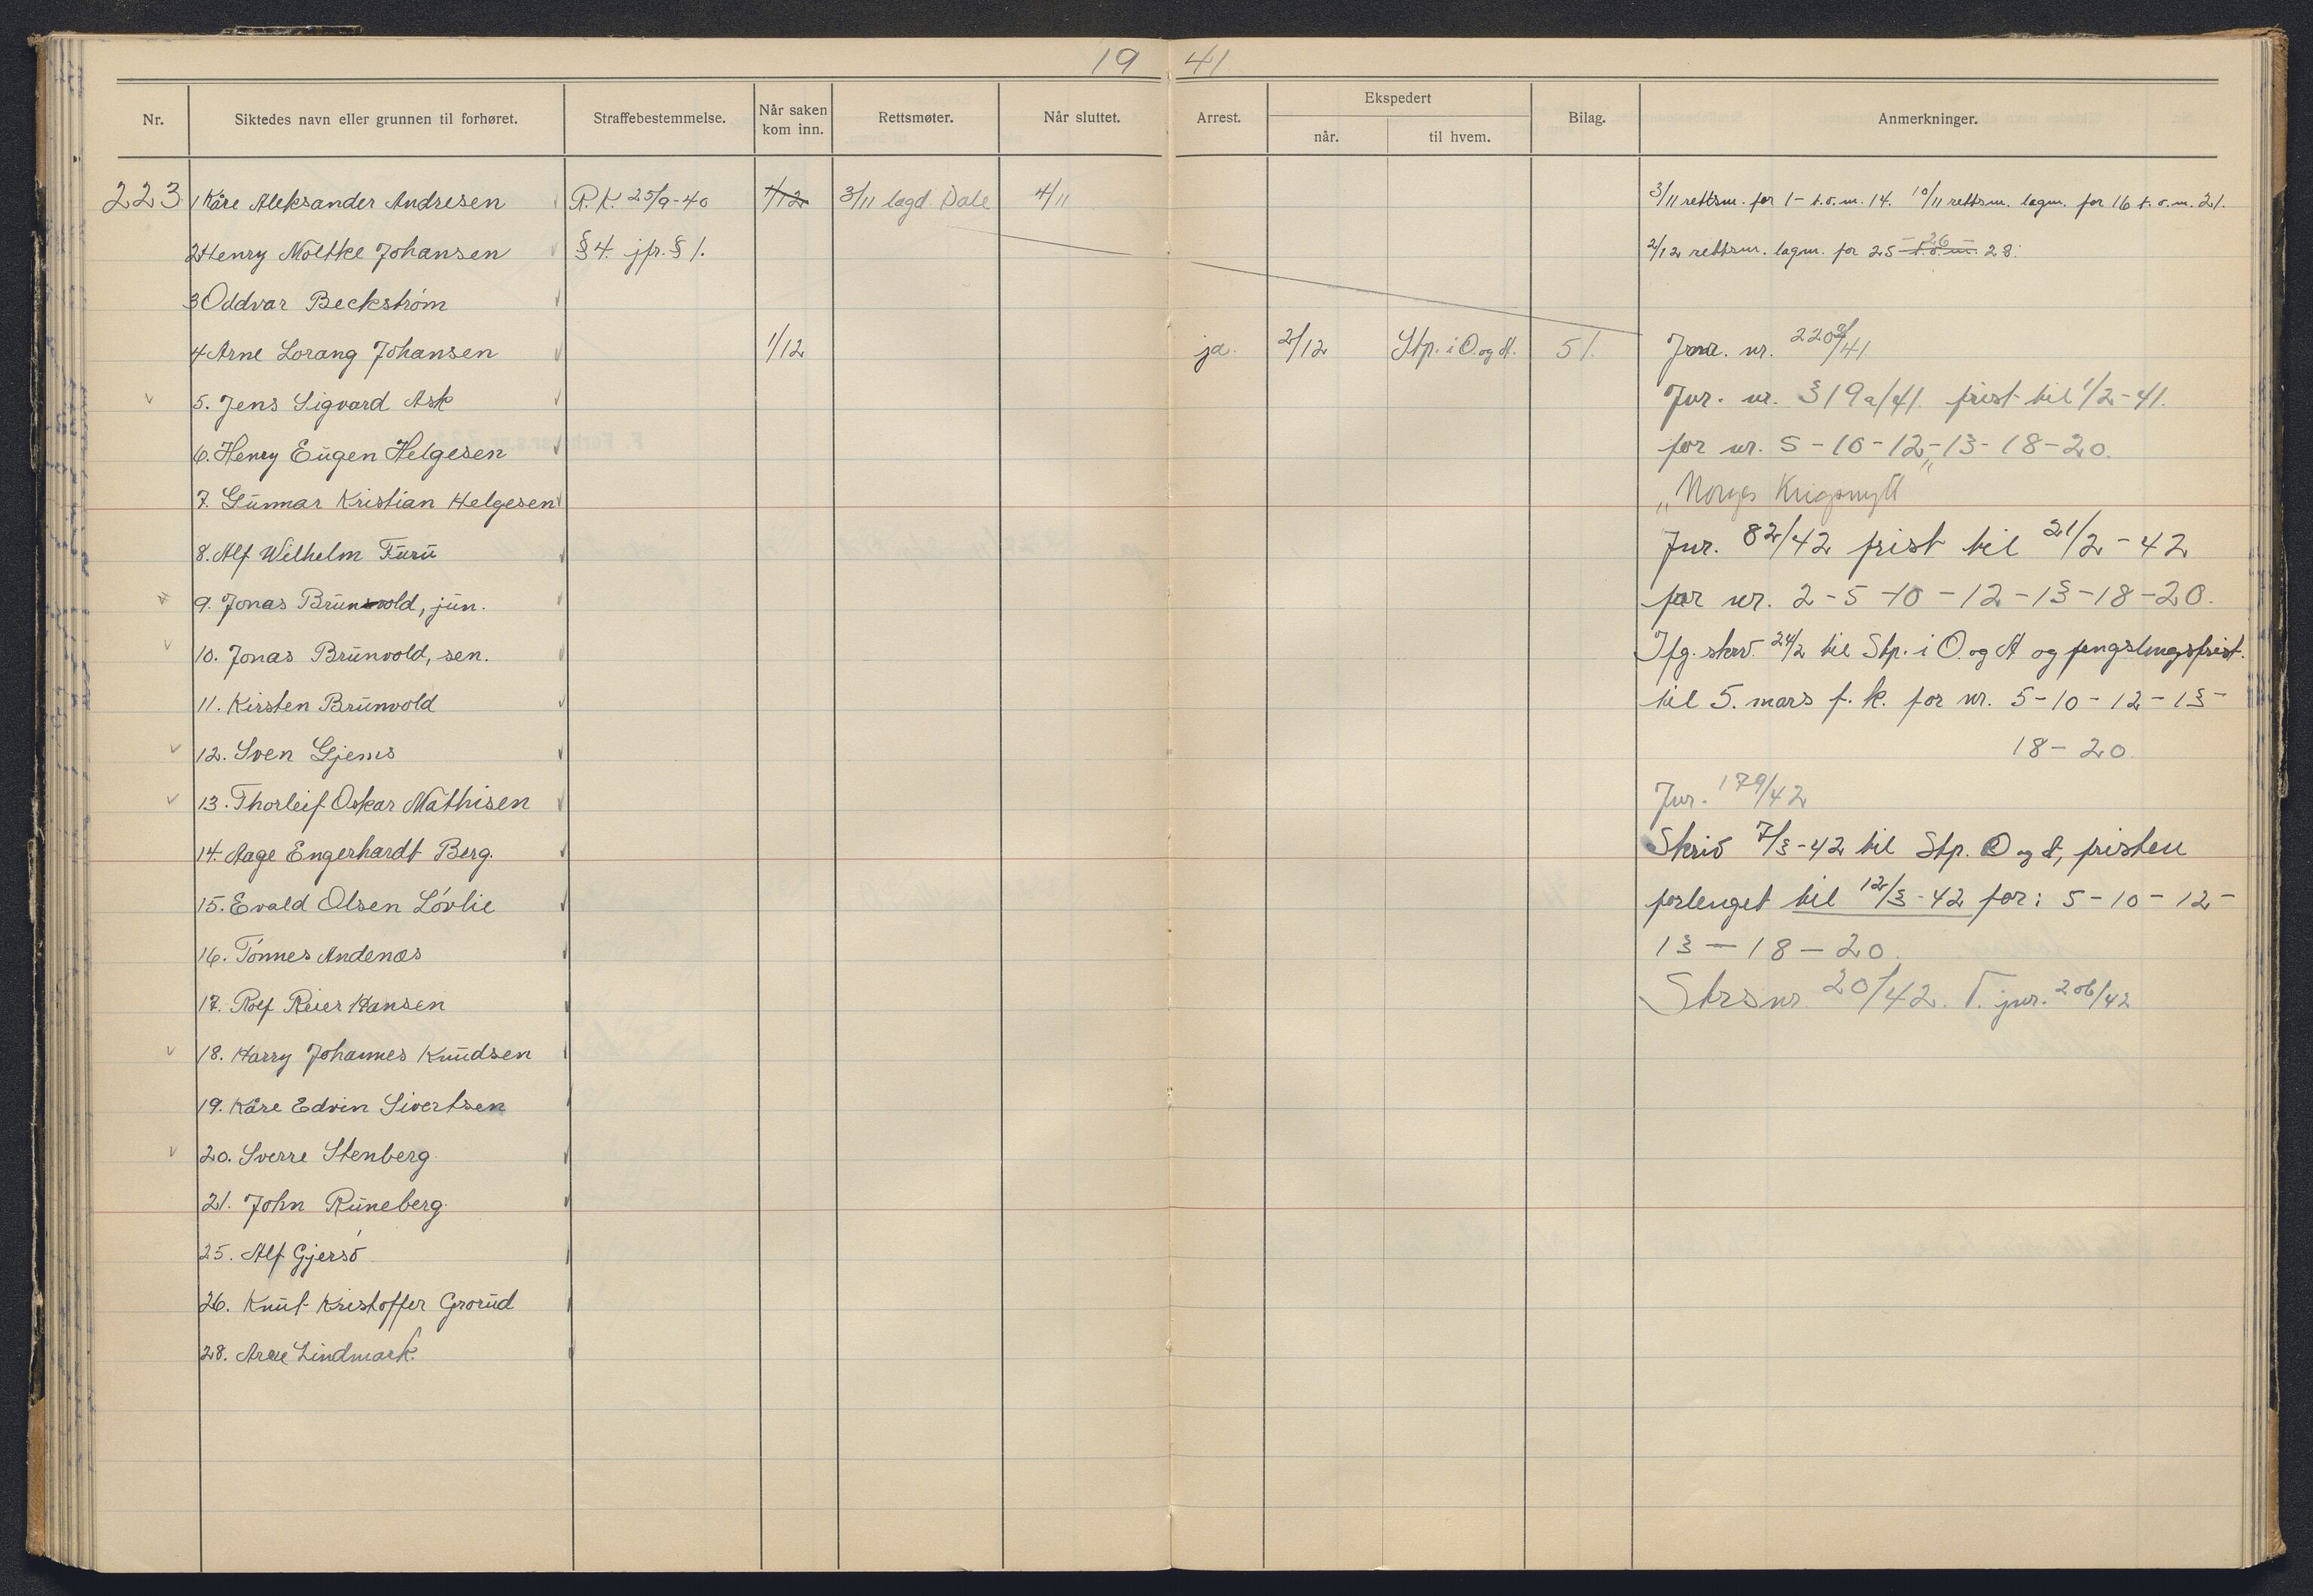 19 41
Nr. Siktedes navn eller grunnen til forhøret. Straffebestemmelse. Når saken kom inn. Rettsmøter. Når sluttet. Arrest. Ekspedert når. til hvem. Bilag. Anmerkninger.
223 1 Kåre Aleksander Andresen R.K. 25/9-40 1/12 3/11 lagd. Dale 4/11 3/11 rettsm. for 1- t.o.m. 14. 10/11 rettsm. lagm. for 16 t.o.m. 21.
2 Henry Moltke Johansen §4. jfr. §1. 2/12 rettsm. lagm. for 25 - t.o.m. 26 - 28.
3 Oddvar Beckstrøm
4 Arne Lorang Johansen 1/12 ja. 2/12 Stp. i O. og A. 51. Jour. nr. 2202/41
5. Jens Sigvard Ask Jur. nr. 319a/41. frist til 1/2-41.
6. Henry Eugen Helgesen for nr. 5-10-12-13-18-20.
7. Gunnar Kristian Helgesen "Norges Krigsnytt"
8. Alf Wilhelm Furu Jur. 82/42 frist til 21/2-42
9. Jonas Brunvold, jun. for nr. 2-5-10-12-13-18-20.
10. Jonas Brunvold, sen. Ifg. skriv. 24/2 til Stp. i O. og A og fengslingsfrist.
11. Kirsten Brunvold til 5. mars f. k. for nr. 5-10-12-13-
12. Sven Gjems 18-20.
13. Thorleif Oskar Mathisen Jur. 179/42
14. Aage Engerhardt Berg. Skriv 7/3-42 til Stp. O og A, fristen
15. Evald Olsen Løvlie forlenget til 12/3-42 for: 5-10-12-
16. Tønnes Andenæs 13-18-20.
17. Rolf Reier Hansen Strsnr. 20/42. V. jur. 206/42
18. Harry Johannes Knudsen
19. Kåre Edvin Sivertsen
20. Sverre Stenberg.
21. John Runeberg.
25. Alf Gjersø
26. Knut Kristoffer Grorud
28. Arne Lindmark.